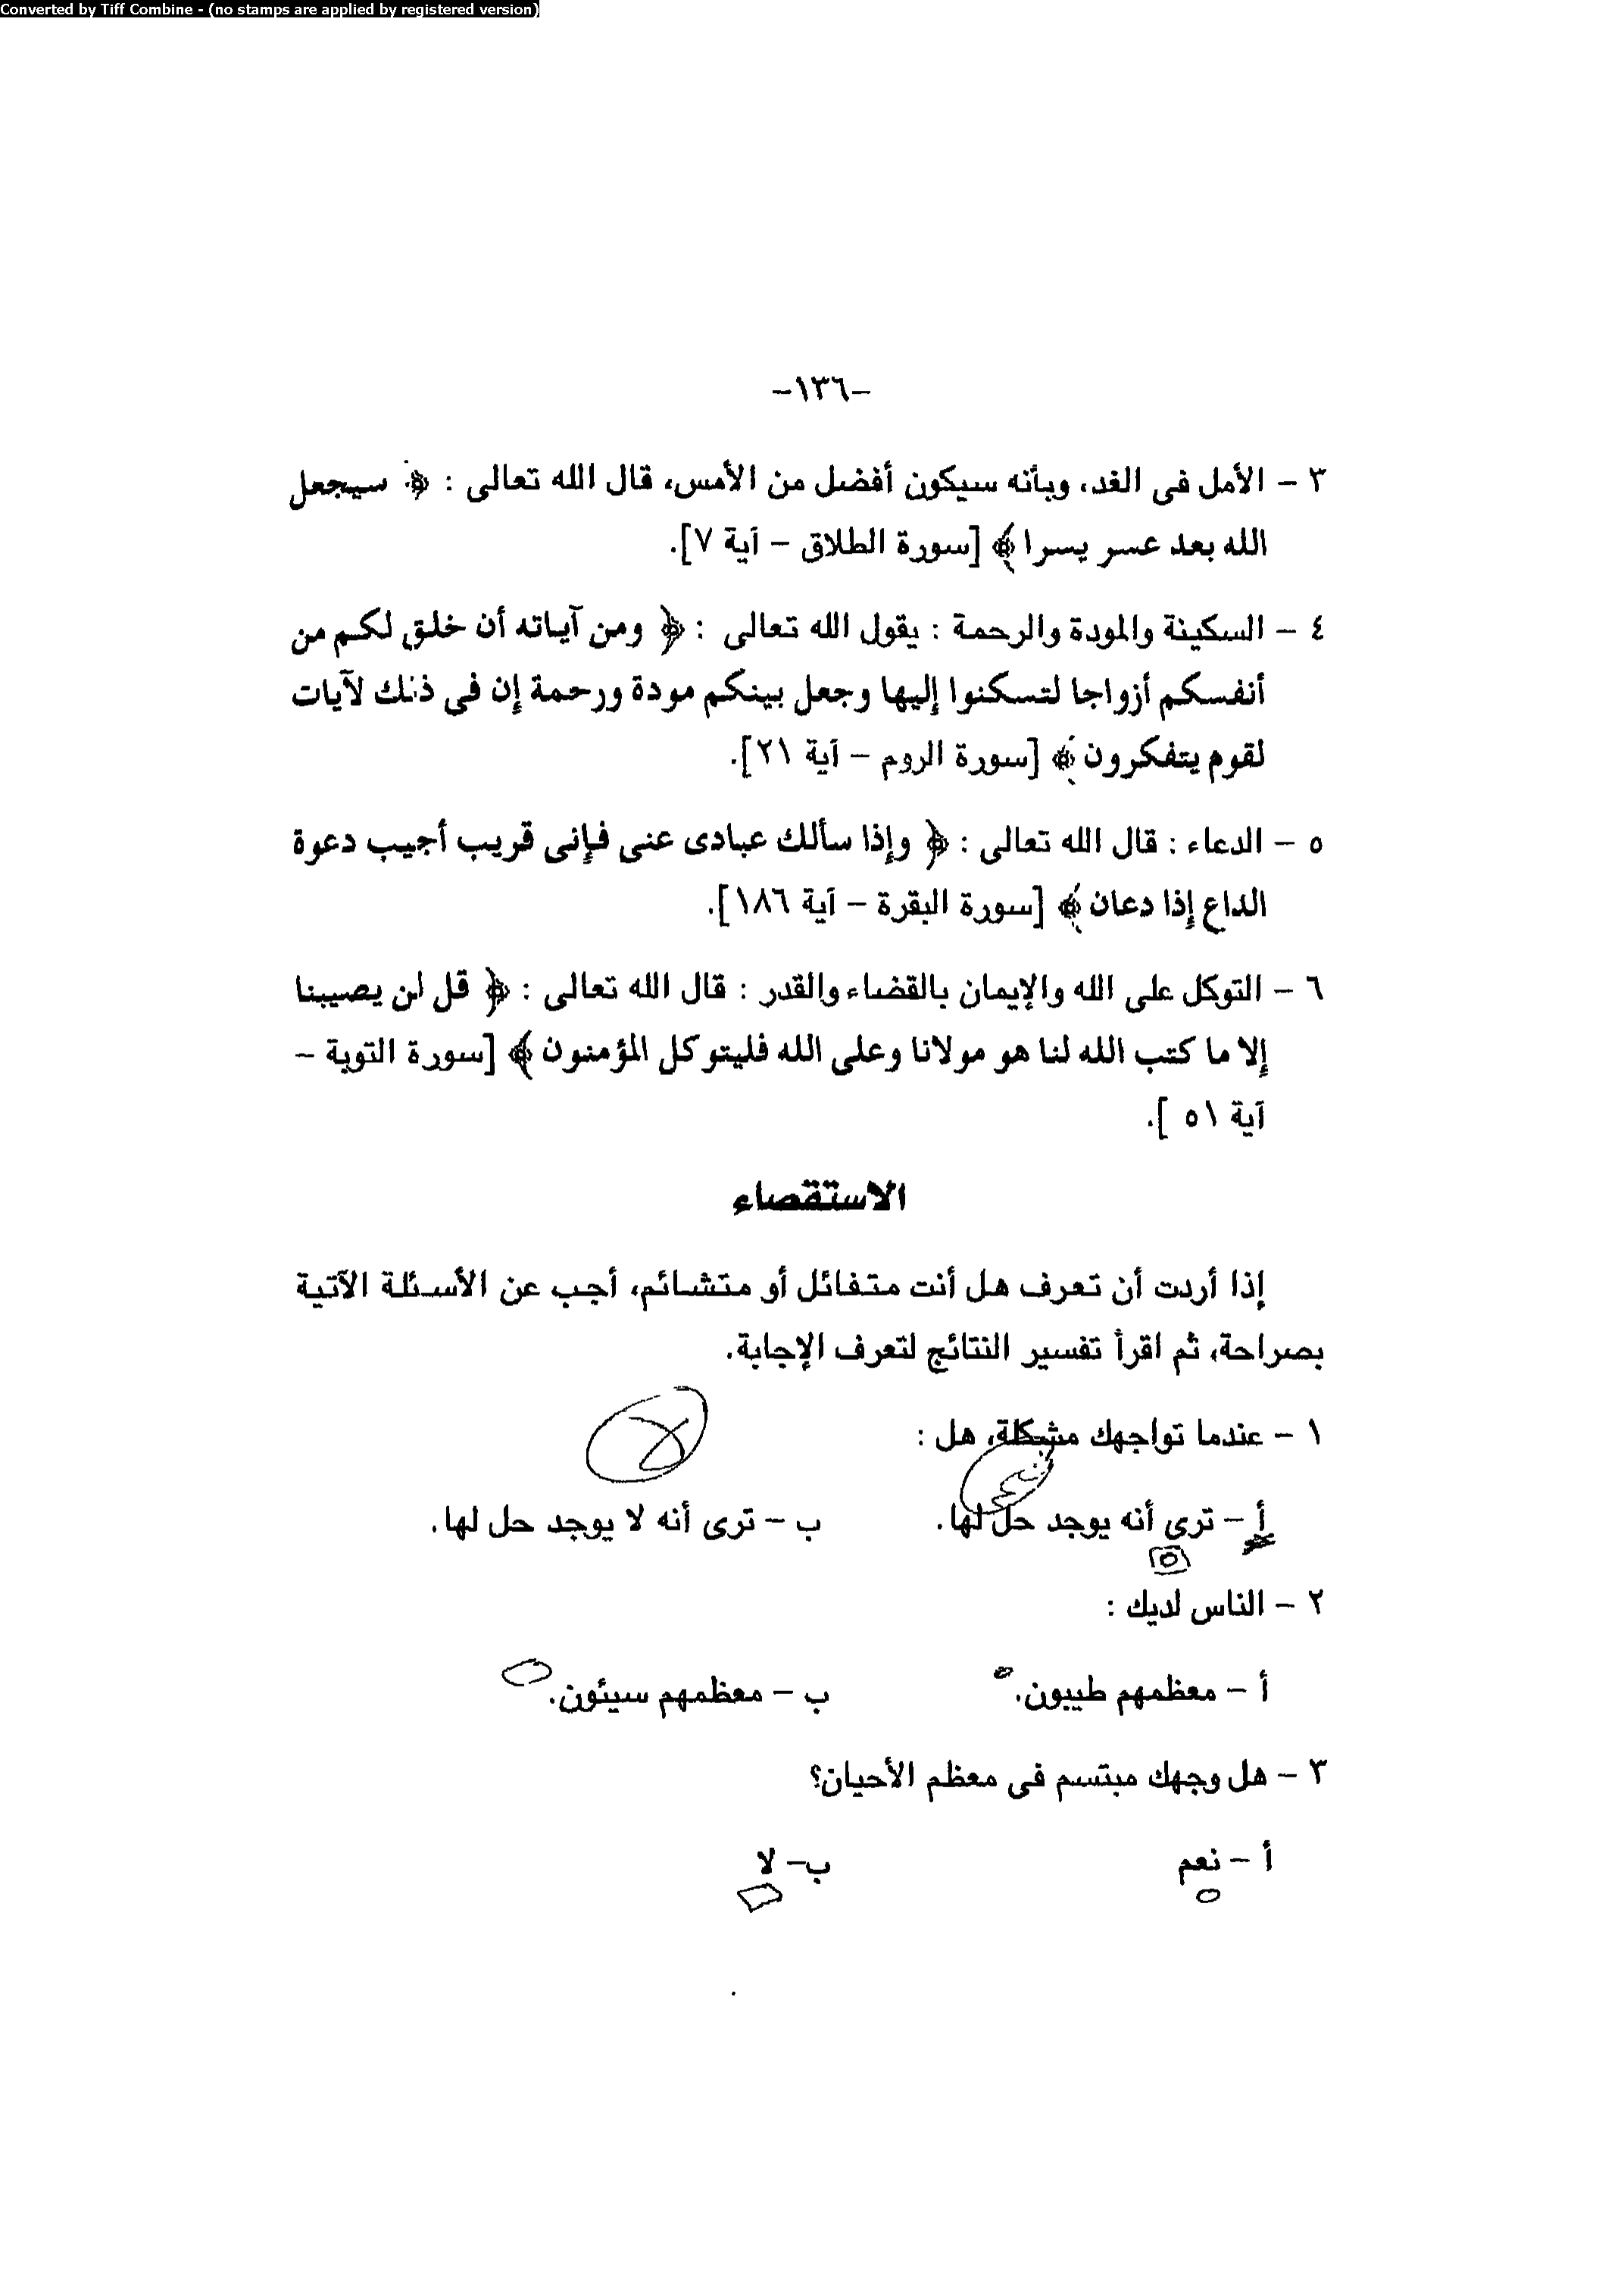 Converted by Tiff Combine - (no stamps are applied by registered version)
-١٣٦-
٣ - الأمل فى الغد، وبأنه سيكون أفضل من الأمس، قال الله تعالى : ﴿ سيجعل
الله بعد عسر يسرا ﴾ [سورة الطلاق - آية ٧].
٤ - السكينة والمودة والرحمة : يقول الله تعالى : ﴿ ومن آياته أن خلق لكم من
أنفسكم أزواجا لتسكنوا إليها وجعل بينكم مودة ورحمة إن فى ذلك لآيات
لقوم يتفكرون ﴾ [سورة الروم - آية ٢١].
٥ - الدعاء : قال الله تعالى : ﴿ وإذا سألك عبادى عنى فإنى قريب أجيب دعوة
الداع إذا دعان ﴾ [سورة البقرة - آية ١٨٦].
٦ - التوكل على الله والإيمان بالقضاء والقدر : قال الله تعالى : ﴿ قل لن يصيبنا
إلا ما كتب الله لنا هو مولانا وعلى الله فليتوكل المؤمنون ﴾ [سورة التوبة -
آية ٥١ ].
الاستقصاء
إذا أردت أن تعرف هل أنت متفائل أو متشائم، أجب عن الأسئلة الآتية
بصراحة، ثم اقرأ تفسير النتائج لتعرف الإجابة.
١ - عندما تواجهك مشكلة، هل :
أ - ترى أنه يوجد حل لها. ب - ترى أنه لا يوجد حل لها.
٢ - الناس لديك :
أ - معظمهم طيبون. ب - معظمهم سيئون.
٣ - هل وجهك مبتسم فى معظم الأحيان؟
أ - نعم ب- لا